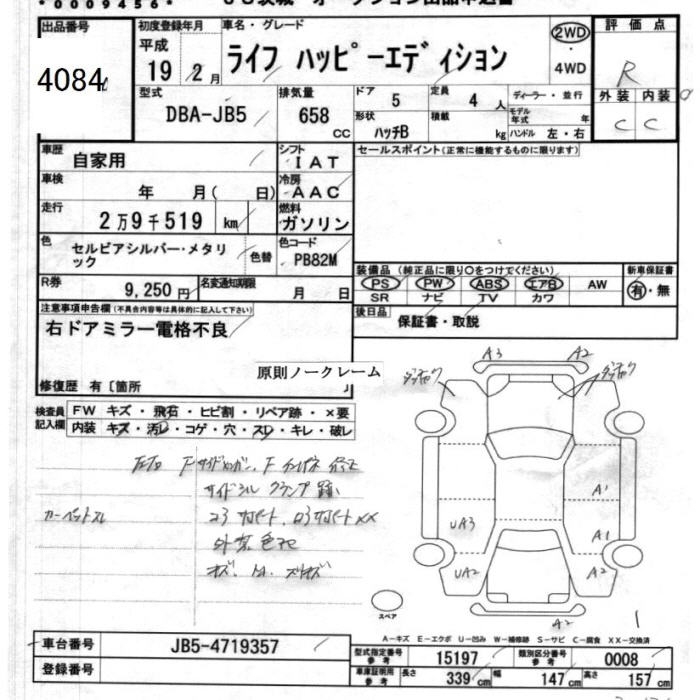 *0009456*
出品番号
4084
初度登録年月
平成
19年2月
車名・グレード
ライフ ハッピーエディション
2WD
4WD
評価点
R
外装 内装
C C
型式
DBA-JB5
排気量
658
CC
ドア 5
定員 4 人
形状 ハッチB
積載 kg
ディーラー・並行
モデル年式 年
ハンドル 左・右
車歴
自家用
シフト
IAT
セールスポイント(正常に機能するものに限ります)
車検
年 月( 日)
冷房
AAC
走行
2万9千519 km
燃料
ガソリン
色
セルビアシルバー・メタリック
色替
色コード
PB82M
R券
9,250円
名変通知期限
月 日
装備品(純正品に限り○をつけてください)
PS PW ABS エアB AW
SR ナビ TV カワ
新車保証書
有・無
後日品
保証書・取説
注意事項申告欄(不具合内容等は具体的に記入して下さい)
右ドアミラー電格不良
原則ノークレーム
修復歴 有〔箇所
検査員記入欄
FW キズ・飛石・ヒビ割・リペア跡・×要
内装 キズ・汚レ・コゲ・穴・スレ・キレ・破レ
サイドシル クランプ跡
カーペットスレ
外装 色アセ
A3 A2
A1
UA3
A1
UA2
A2
A2
スペア
A−キズ E−エクボ U−凹み W−補修跡 S−サビ C−腐食 XX−交換済
車台番号
JB5-4719357
登録番号
型式指定番号 参考
15197
類別区分番号 参考
0008
車庫証明用 参考
長さ 339 cm
幅 147 cm
高さ 157 cm